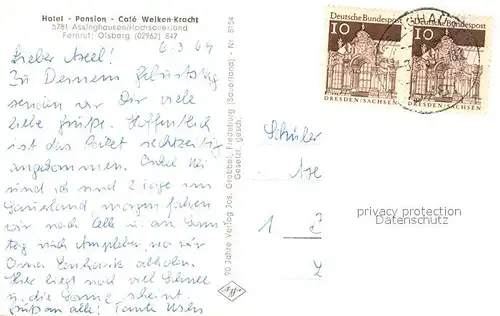 Hotel - Pension - Café Welken-Kracht
5781 Assinghausen/Hochsauerland
Fernruf: Olsberg (02962) 847
6.3.69
Lieber Axel!
Zu Deinem Geburtstag
senden wir Dir viele
liebe Grüße. Hoffentlich
ist das Paket rechtzeitig
angekommen. Onkel
sind ich und 2 Tage im
Sauerland, morgen fahren
wir nach Celle u. am Sonn
tag nach, wo wir
Oma abholen.
Hier liegt noch viel Schnee
u. die Sonne scheint.
Grüß an alle! Tante
90 Jahre Verlag Jos. Grobbel, Fredeburg (Sauerland) - Nr. 8154
Gesetzl. gesch.
Deutsche Bundespost
10
DRESDEN/SACHSEN
Deutsche Bundespost
10
DRESDEN/SACHSEN
Schüler
Axe
1
privacy protection
Datenschutz